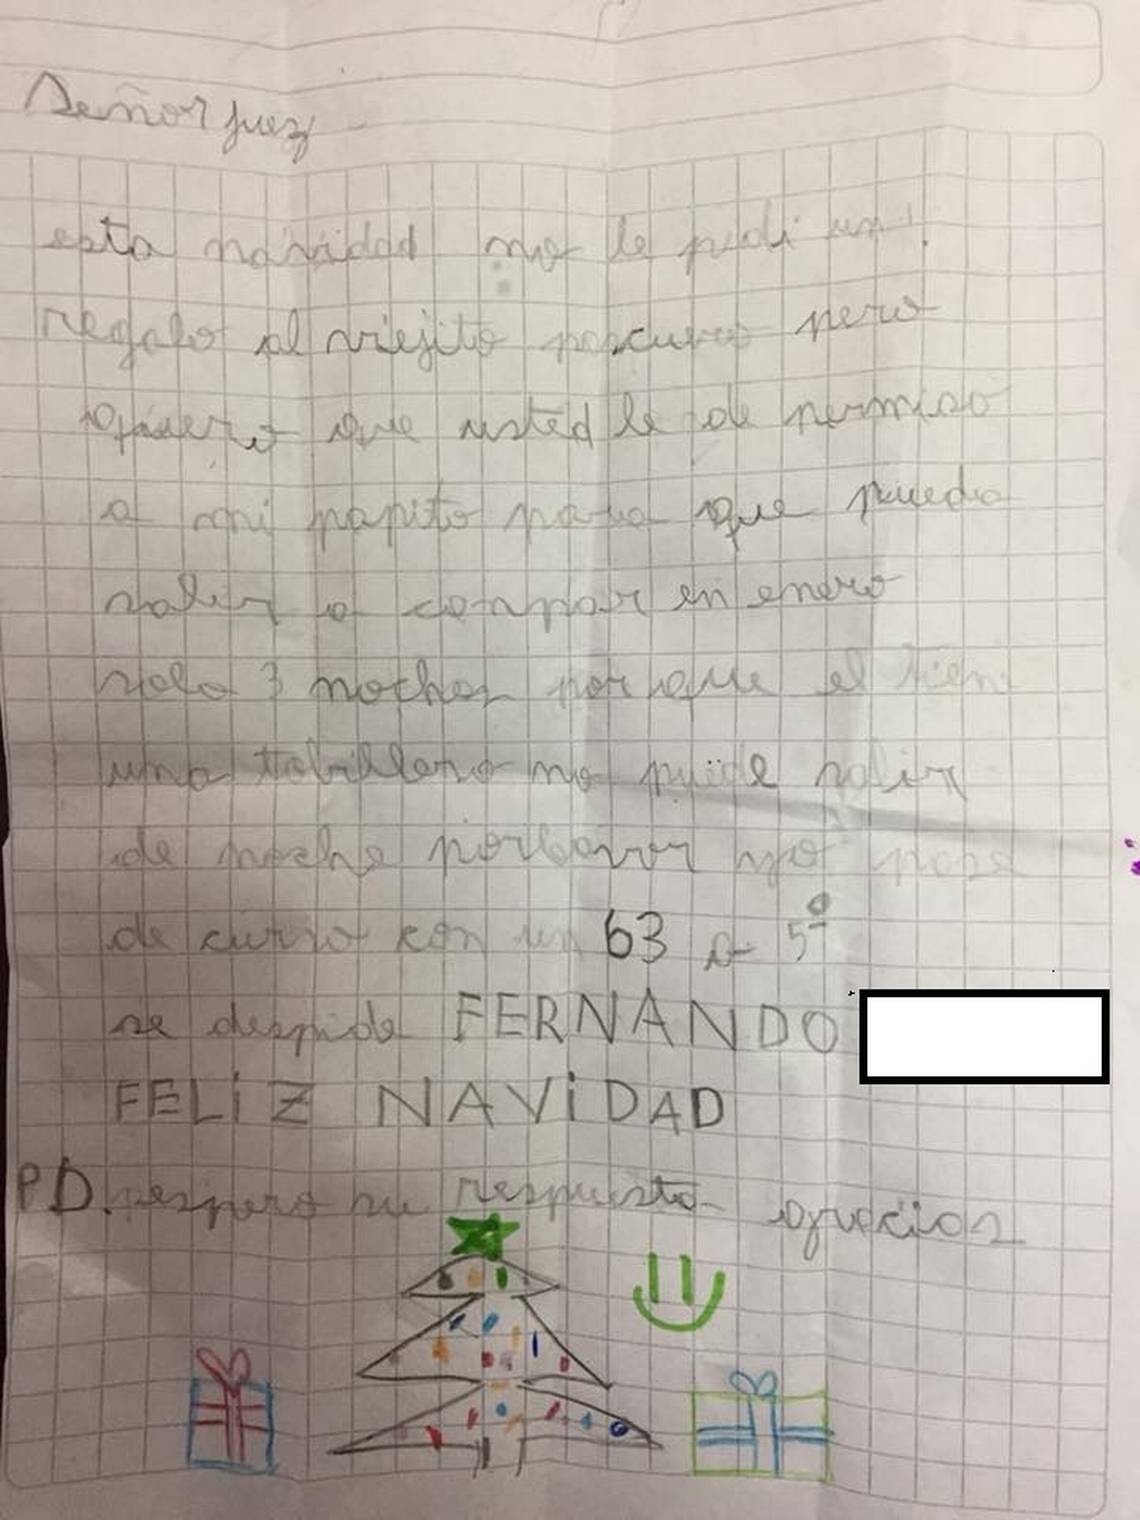 Señor juez
esta navidad no le pedi un
regalo al viejito pascuero pero
quiero que usted le de permiso
a mi papito para que pueda
salir a conpar en enero
solo 3 noches por que el tien
una tobillera no puede salir
de noche porfavor yo pase
de curso con un 63 a 5º
se despide FERNANDO
FELiZ NAViDAD
PD. espero su respuesta gracias